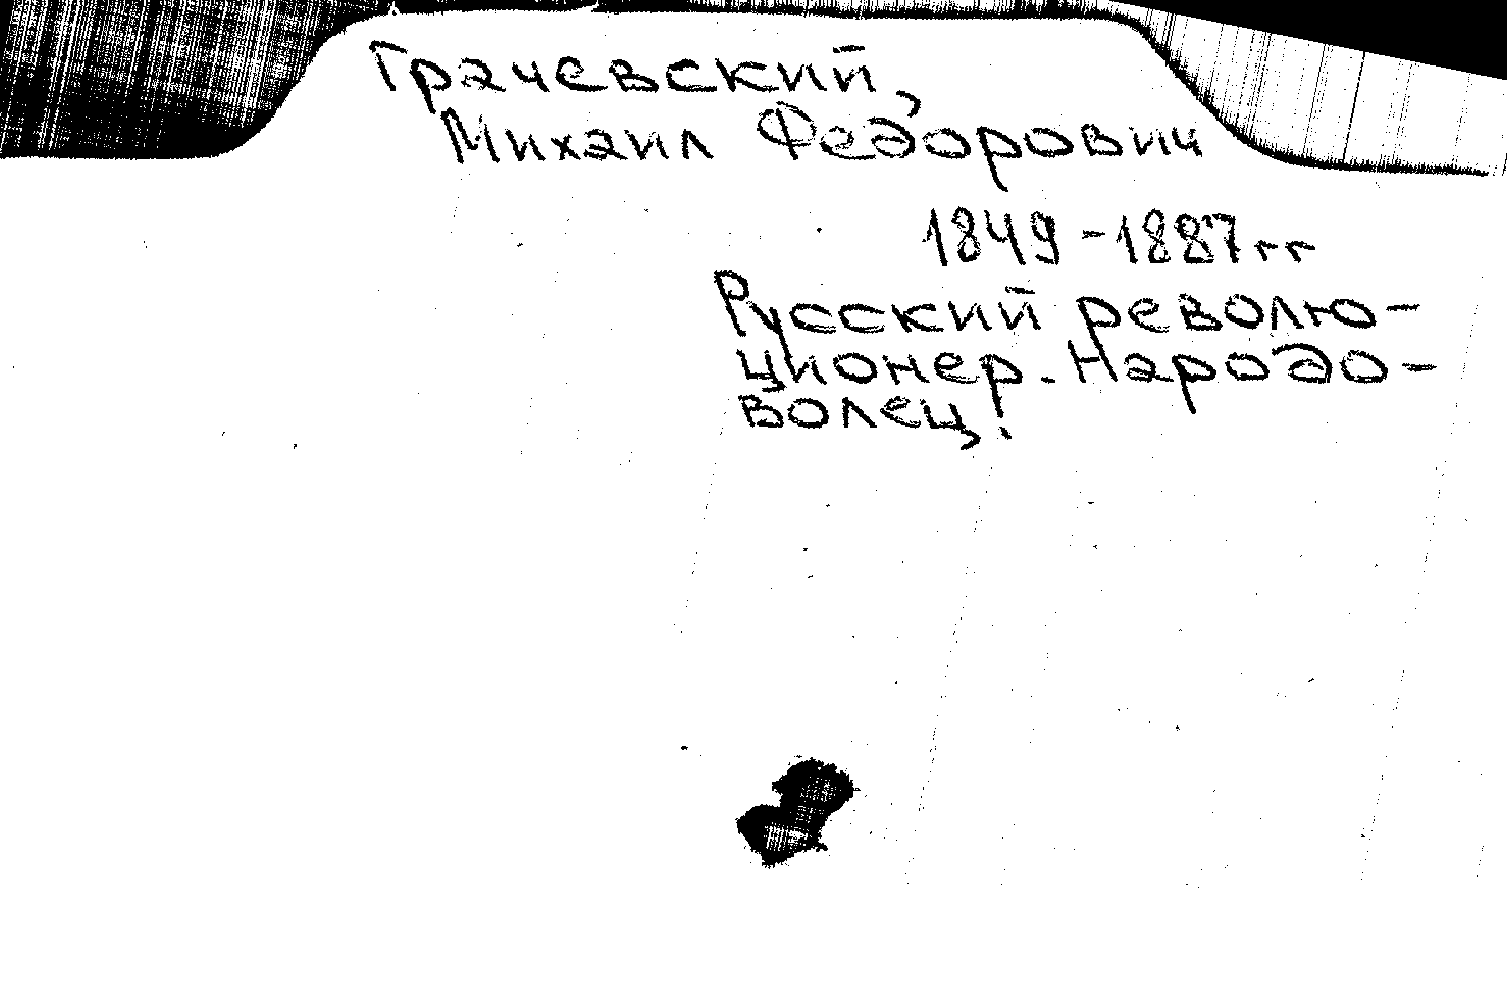 Грачевский,
Михаил Федорович
1849-1887гг
Русский револю-
ционер. Народо-
волец.